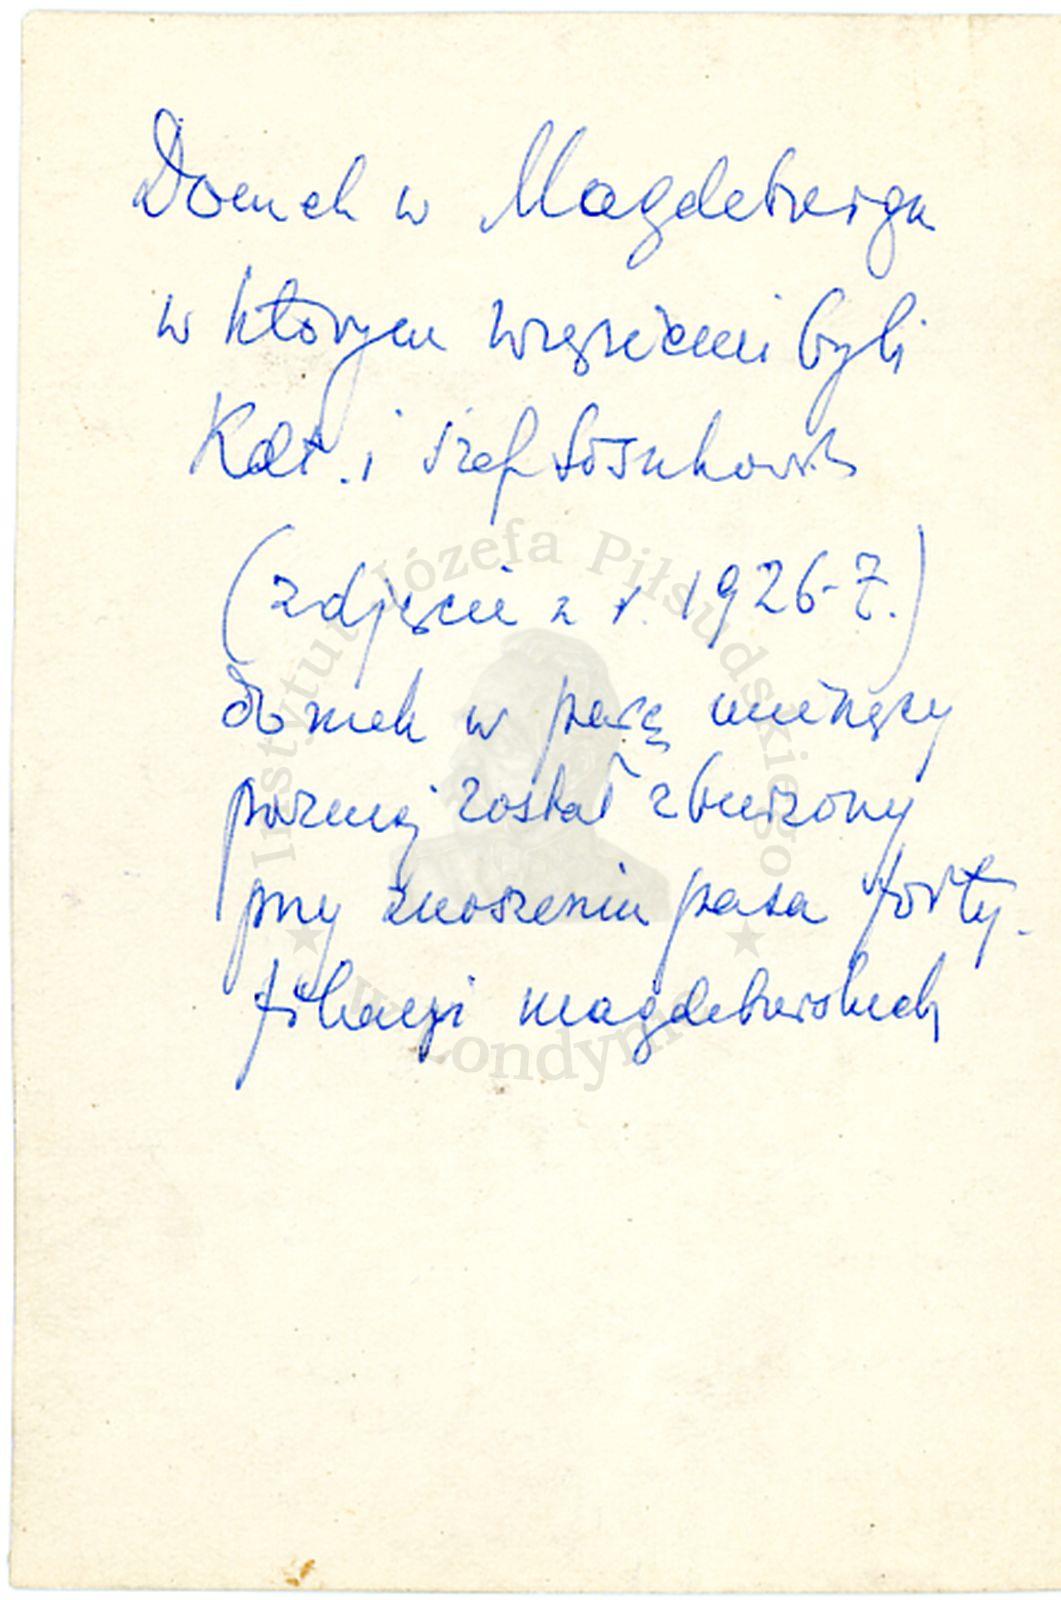 Domek w Magdeburgu
w którym więzieni byli
Kdt. i szef Sosnkowski
(zdjęcie z r. 1926-7.)
domek w parę miesięcy
poźniej został zburzony
przy znoszeniu pasa forty-
fikacji magdeburskich
Instytut Józefa Piłsudskiego
w Londynie